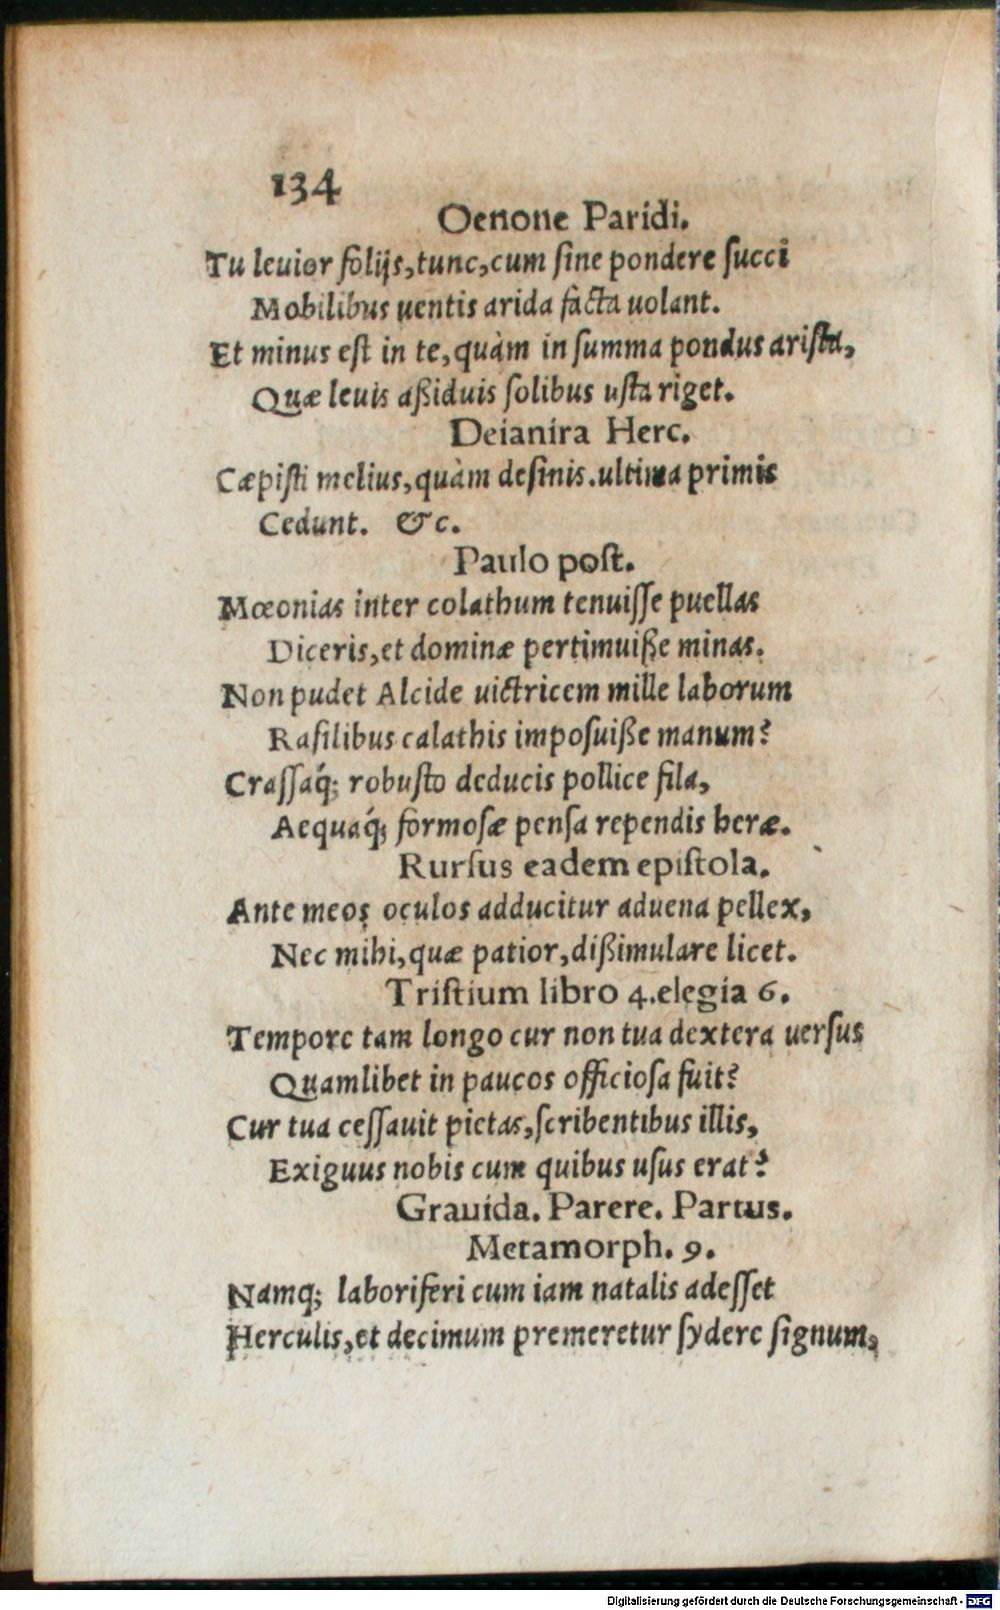 134
Oenone Paridi.
Tu leuior folijs, tunc, cum sine pondere succi
Mobilibus uentis arida facta uolant.
Et minus est in te, quàm in summa pondus arista,
Quæ leuis aßiduis solibus usta riget.
Deianira Herc.
Cæpisti melius, quàm desinis. ultima primis
Cedunt. &c.
Paulo post.
Mœonias inter colathum tenuisse puellas
Diceris, et dominæ pertimuiße minas.
Non pudet Alcide uictricem mille laborum
Rasilibus calathis imposuiße manum?
Crassaq́; robusto deducis pollice fila,
Aequaq́; formosæ pensa rependis heræ.
Rursus eadem epistola.
Ante meos oculos adducitur aduena pellex,
Nec mihi, quæ patior, dißimulare licet.
Tristium libro 4. elegia 6.
Tempore tam longo cur non tua dextera uersus
Quamlibet in paucos officiosa fuit?
Cur tua cessauit pietas, scribentibus illis,
Exiguus nobis cum quibus usus erat?
Grauida. Parere. Partus.
Metamorph. 9.
Namq; laboriferi cum iam natalis adesset
Herculis, et decimum premeretur sydere signum,
Digitalisierung gefördert durch die Deutsche Forschungsgemeinschaft - DFG